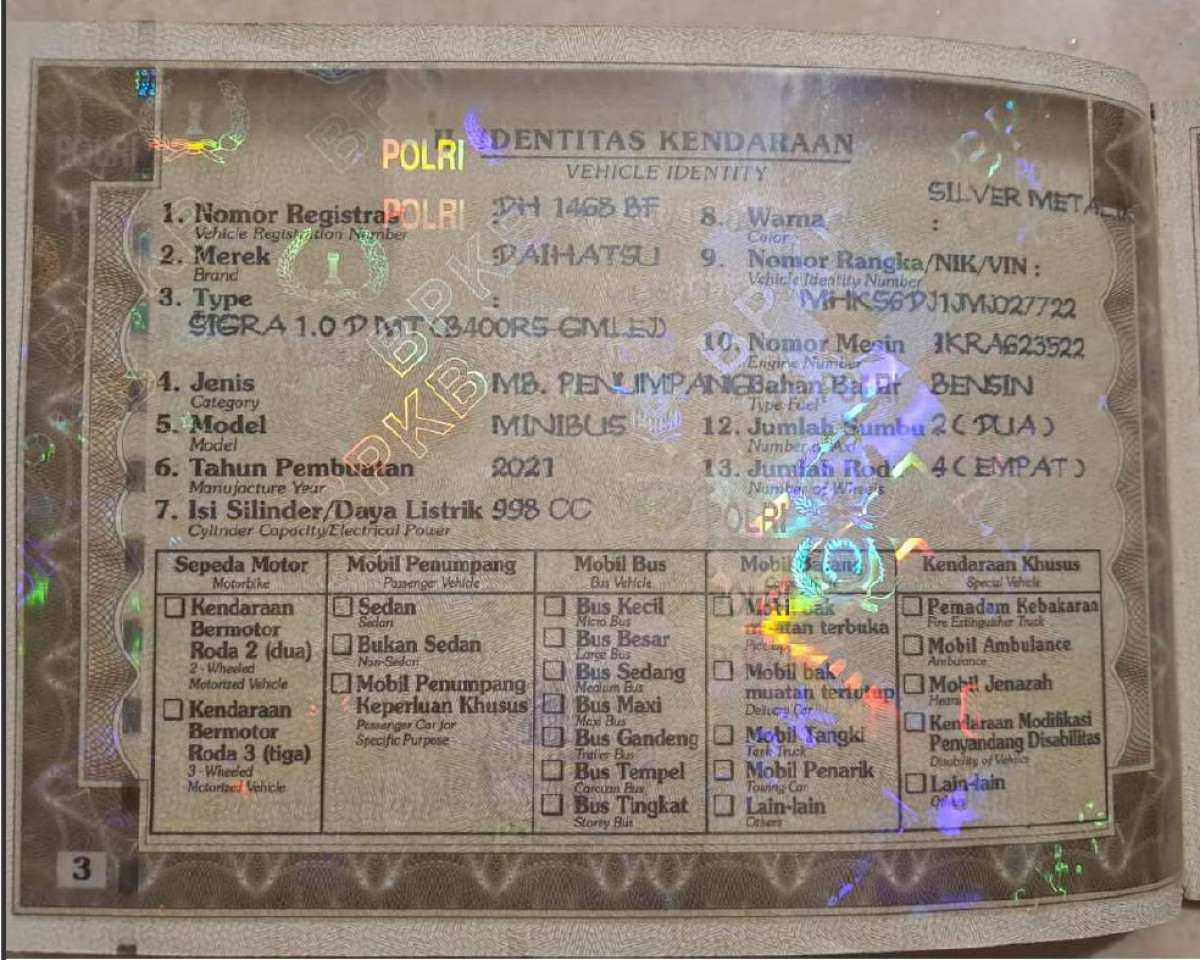 II. IDENTITAS KENDARAAN
VEHICLE IDENTITY
POLRI
POLRI
1. Nomor Registras : DH 1468 BF
Vehicle Registration Number
2. Merek : DAIHATSU
Brand
3. Type :
SIGRA 1.0 D MT (B400RS-GMLEJ)
4. Jenis MB. PENUMPANG
Category
5. Model MINIBUS
Model
6. Tahun Pembuatan 2021
Manufacture Year
7. Isi Silinder/Daya Listrik 998 CC
Cylinder Capacity/Electrical Power
SILVER METALIK
8. Warna :
Color
9. Nomor Rangka/NIK/VIN :
Vehicle Identity Number
MHKS6DJ1JMJ027722
10. Nomor Mesin 1KRA623522
Engine Number
Bahan Bakar BENSIN
Type Fuel
12. Jumlah Sumbu 2 ( DUA )
Number of Axl
13. Jumlah Rod 4 ( EMPAT )
Number of Wheels
BPKB
BPKB
Sepeda Motor
Motorbike
Kendaraan
Bermotor
Roda 2 (dua)
2 - Wheeled
Motorized Vehicle
Kendaraan
Bermotor
Roda 3 (tiga)
3 - Wheeled
Motorized Vehicle
Mobil Penumpang
Passenger Vehicle
Sedan
Sedan
Bukan Sedan
Non-Sedan
Mobil Penumpang
Keperluan Khusus
Passenger Car for
Specific Purpose
Mobil Bus
Bus Vehicle
Bus Kecil
Micro Bus
Bus Besar
Large Bus
Bus Sedang
Medium Bus
Bus Maxi
Maxi Bus
Bus Gandeng
Trailer Bus
Bus Tempel
Caravan Bus
Bus Tingkat
Storey Bus
Mobil Barang
Mobil bak
muatan terbuka
Mobil bak
muatan tertutup
Delivery Car
Mobil Tangki
Tank Truck
Mobil Penarik
Towing Car
Lain-lain
Others
Kendaraan Khusus
Special Vehicle
Pemadam Kebakaran
Fire Extinguisher Truck
Mobil Ambulance
Ambulance
Mobil Jenazah
Hearse
Kendaraan Modifikasi
Penyandang Disabilitas
Disability of Vehicle
Lain-lain
Others
3